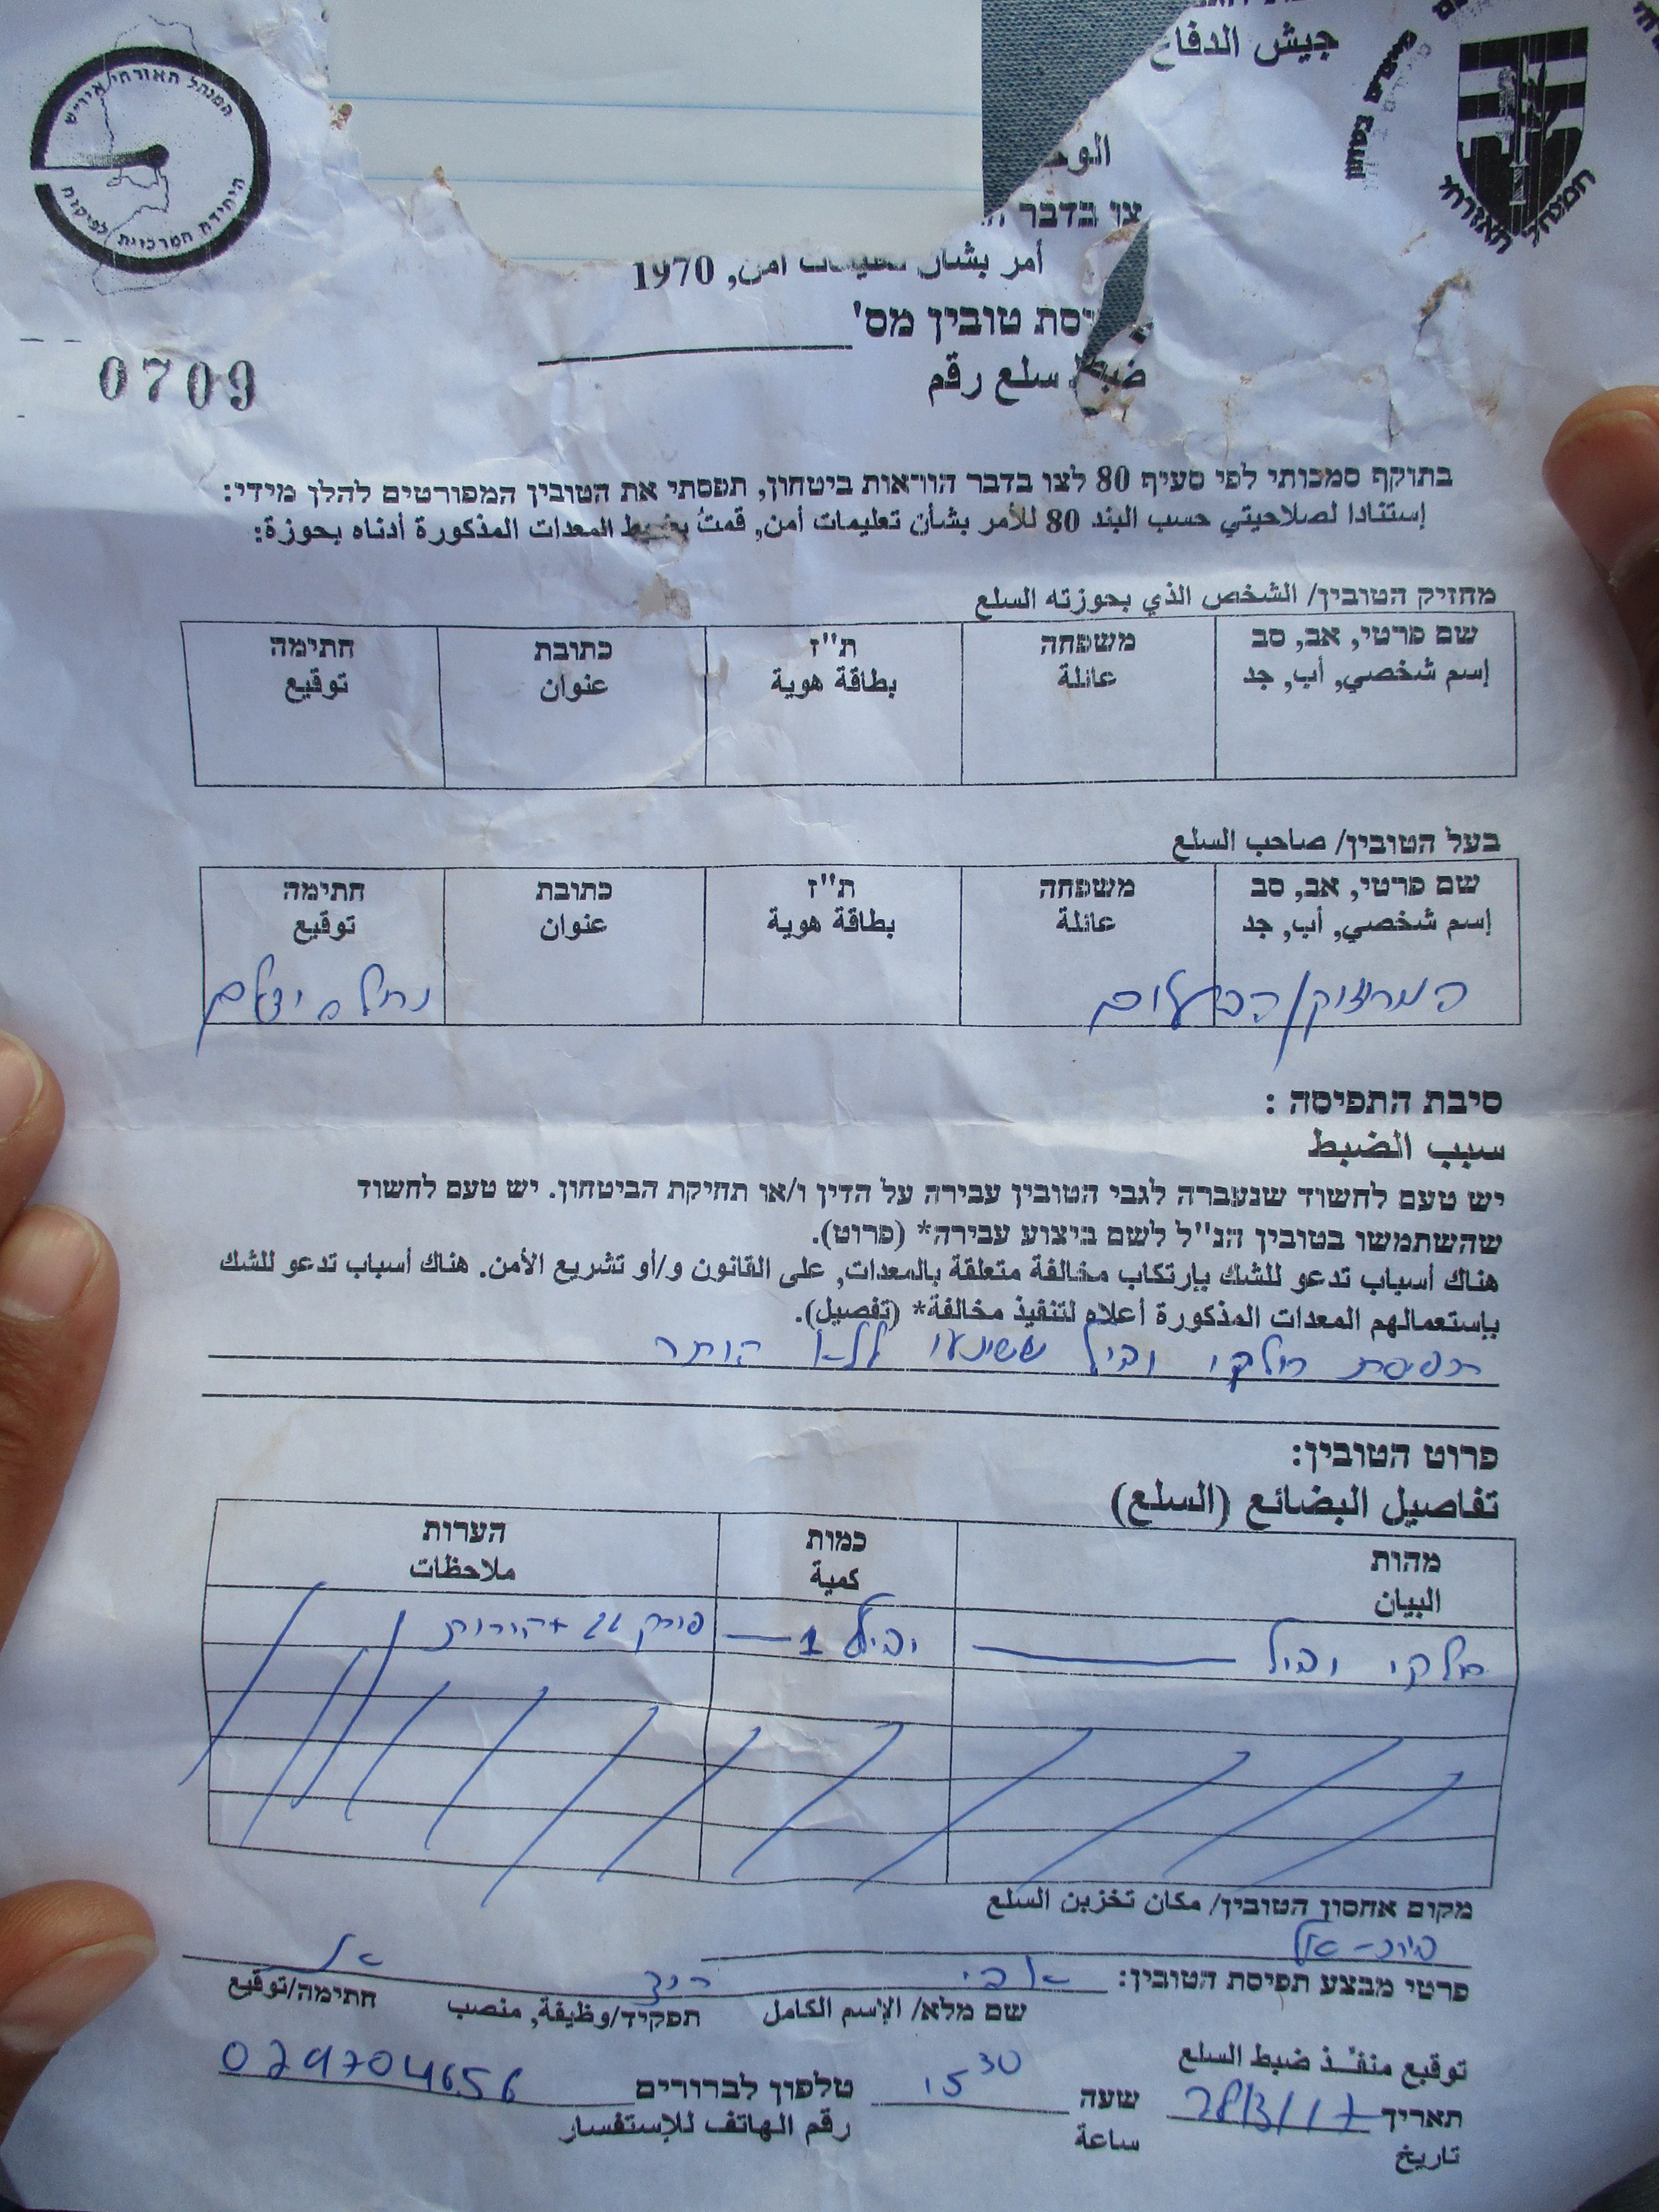 המנהל האזרחי איו"ש
היחידה המרכזית לפיקוח
جيش الدفاع
המנהל האזרחי
צו בדבר
أمر بشأن تعليمات أمن, 1970
טובין מס'
0709
ضبط سلع رقم
בתוקף סמכותי לפי סעיף 80 לצו בדבר הוראות ביטחון, תפסתי את הטובין המפורטים להלן מידי:
إستنادا لصلاحيتي حسب البند 80 للأمر بشأن تعليمات أمن, قمتُ بضبط المعدات المذكورة أدناه بحوزة:
מחזיק הטובין/ الشخص الذي بحوزته السلع
שם פרטי, אב, סב משפחה ת"ז כתובת חתימה
إسم شخصي, أب, جد عائلة بطاقة هوية عنوان توقيع
בעל הטובין/ صاحب السلع
שם פרטי, אב, סב משפחה ת"ז כתובת חתימה
إسم شخصي, أب, جد عائلة بطاقة هوية عنوان توقيع
סיבת התפיסה :
سبب الضبط
יש טעם לחשוד שנעברה לגבי הטובין עבירה על הדין ו/או תחיקת הביטחון. יש טעם לחשוד
שהשתמשו בטובין הנ"ל לשם ביצוע עבירה* (פרוט).
هناك أسباب تدعو للشك بإرتكاب مخالفة متعلقة بالمعدات, على القانون و/أو تشريع الأمن. هناك أسباب تدعو للشك
بإستعمالهم المعدات المذكورة أعلاه لتنفيذ مخالفة* (تفصيل).
תפיסת חלקי יביל ששינעו ללא היתר
פרוט הטובין:
تفاصيل البضائع (السلع)
מהות כמות הערות
البيان كمية ملاحظات
חלקי יביל יביל 1 פורק
מקום אחסון הטובין/ مكان تخزين السلع
בית-אל
פרטי מבצע תפיסת הטובין:
שם מלא/ الإسم الكامل תפקיד/وظيفة, منصب חתימה/توقيع
توقيع منفّذ ضبط السلع
תאריך 28/3/17 שעה 15 30 טלפון לברורים 029704656
تاريخ ساعة رقم الهاتف للإستفسار